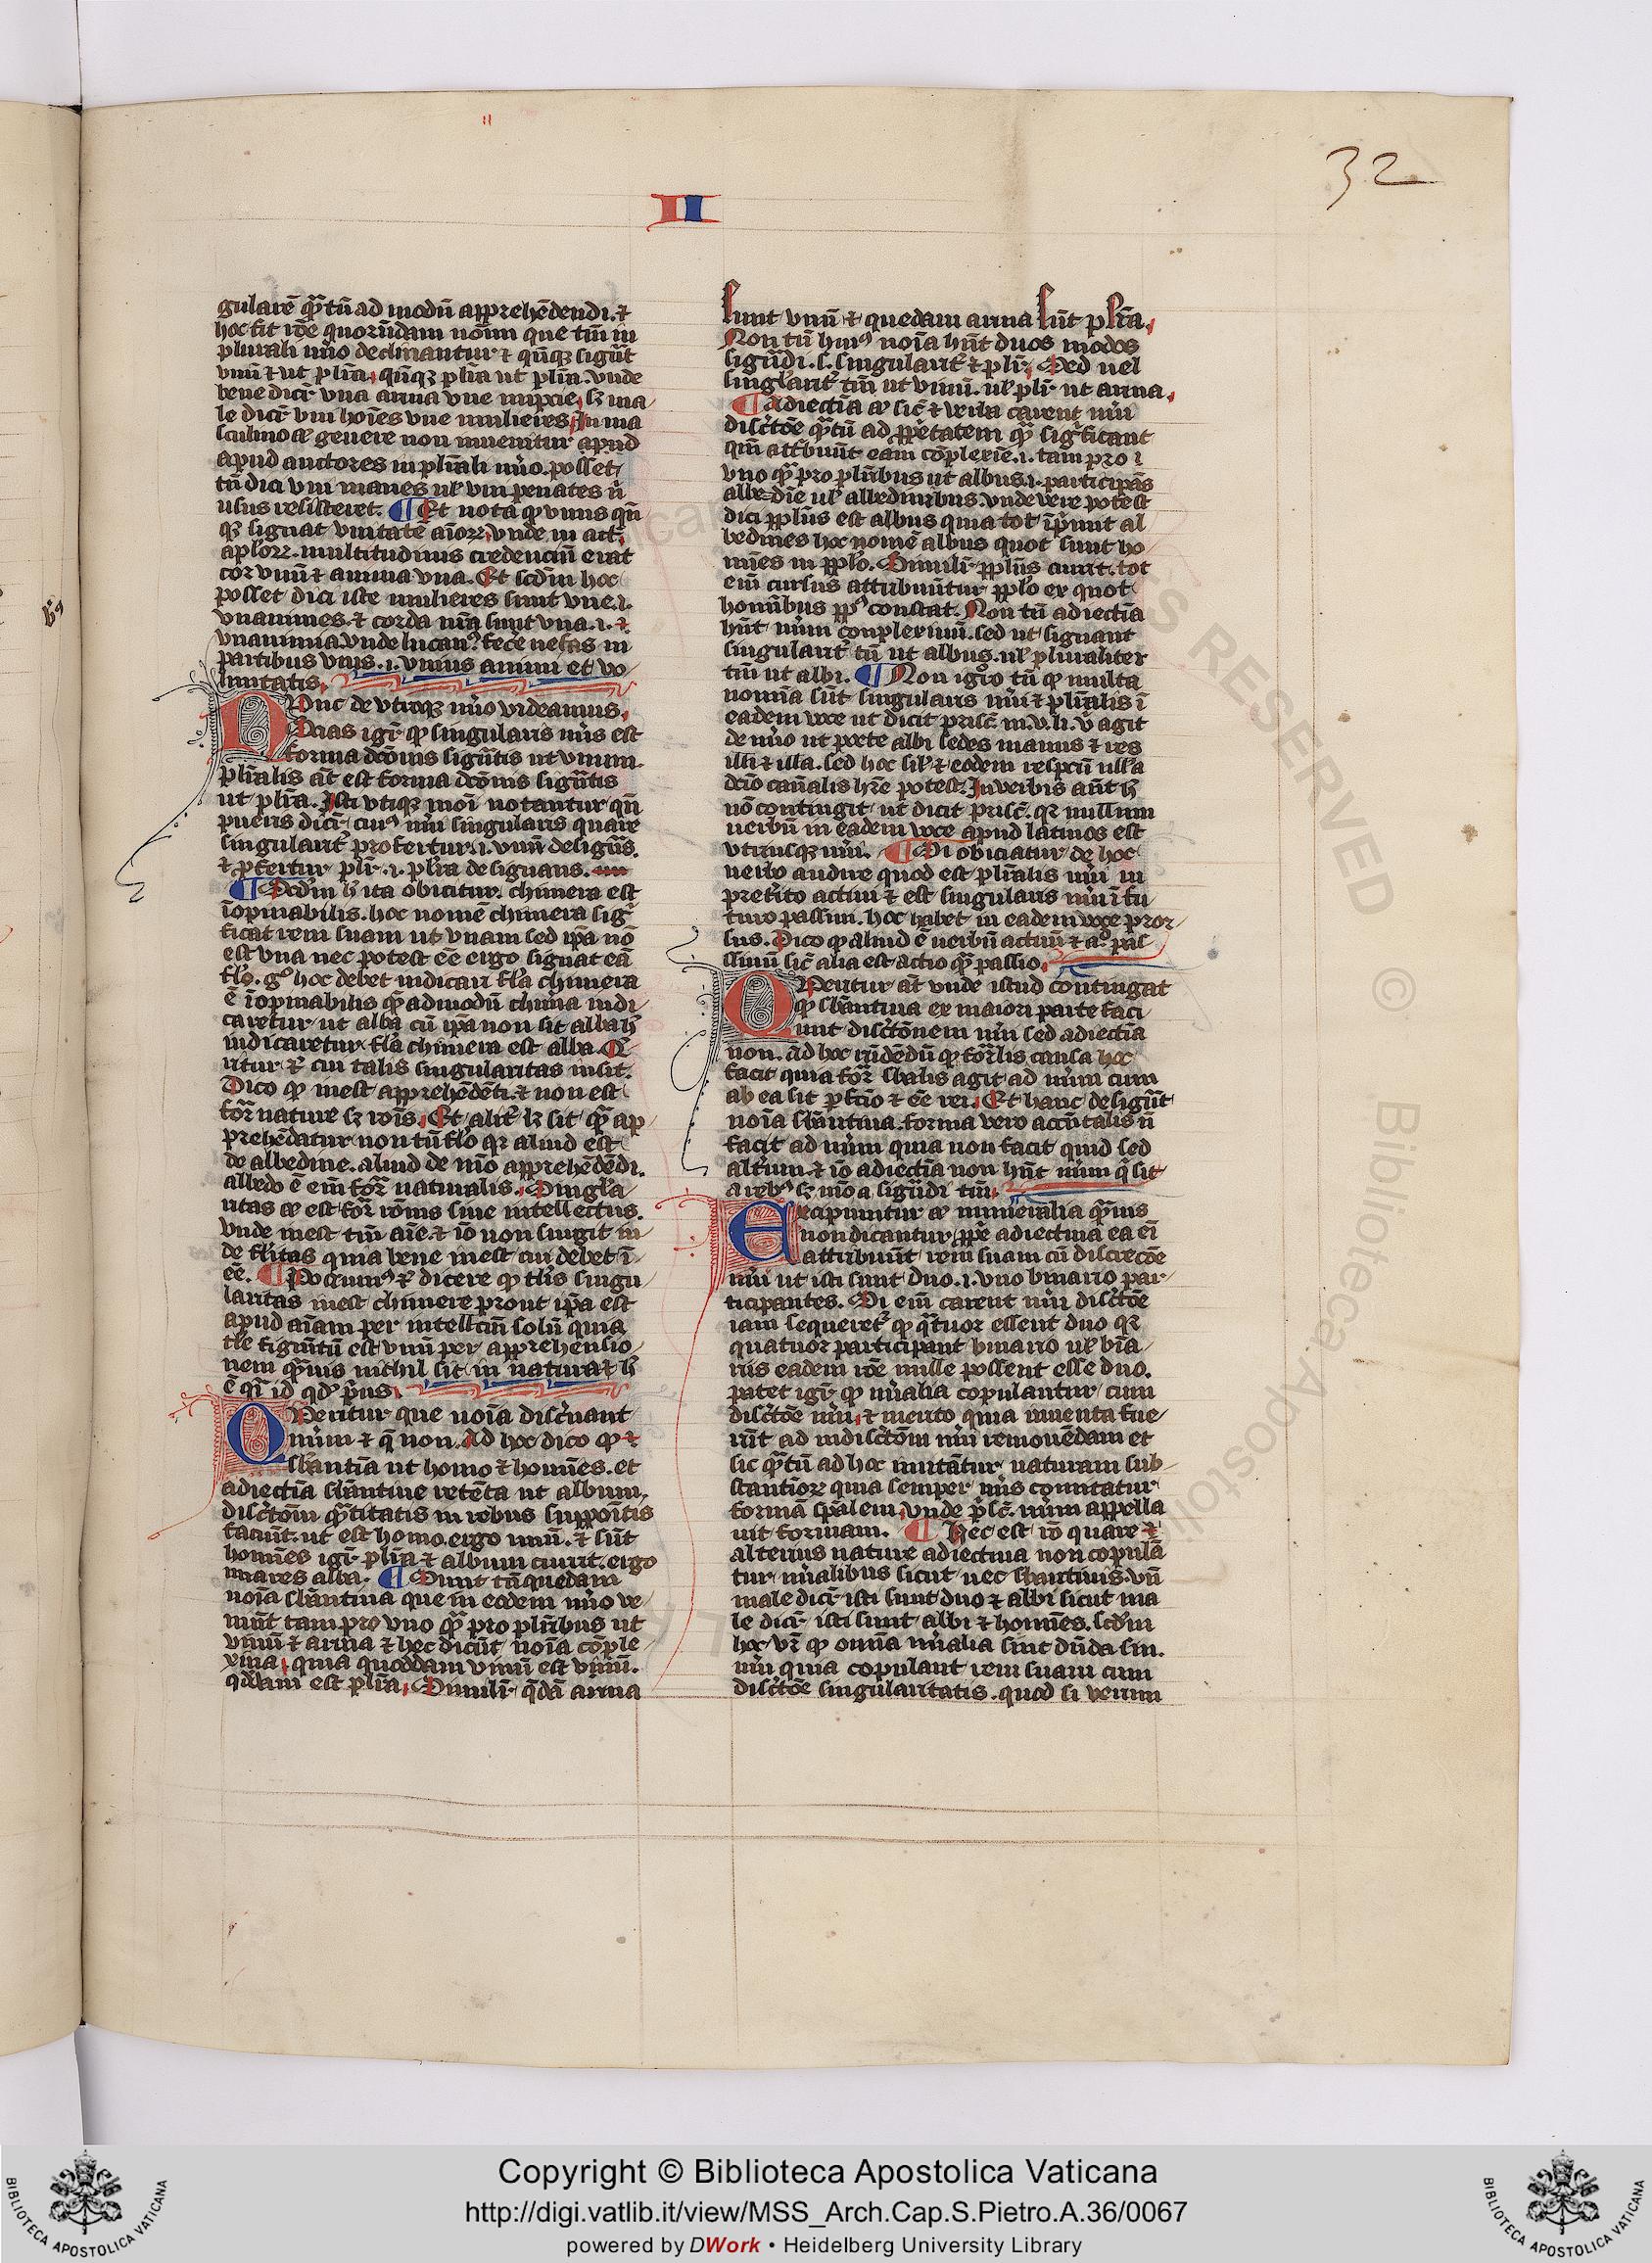 32
II
gularē qͣtū ad modū apprehēdendi. ⁊
hoc fit rōe quorūdam noīm que tm̄ in
plurali nūo declinantur ⁊ qn̄qꝫ sigūt
vnū ⁊ ut plīa, qn̄qꝫ plīa ut plīa. vnde
bene dicr̄ vna arma vne nupcie, sꝫ ma
le dicr̄ vni hoīes vne mulieres, In ma
sculino aē genere non inuenitur apud
apud auctores in plīali nūo. posset
tn̄ dici vni manes uł vni penates ń
usus resisteret. ¶ Et nota ꝙ vnus qn̄
qꝫ signat vnitatē aīorꝝ, vnde in act̄.
apłorꝝ. multitudinis credenciū erat
cor vnū ⁊ anima vna. Et scd̄m hoc
posset dici iste mulieres sunt vne .i.
vnanimes. ⁊ corda nr̄a sunt vna .i. ⁊
vnanimia. vnde lucanꝰ. fecē nefas in
partibus vnis .i. vnius animi et vo
luntatis.
Nunc de vtroqꝫ nūo videamus.
Scias igr̄ ꝙ singularis nūs est
forma dcōnis sigūtis ut vnum.
plīalis at̄ est forma dcōnis sigūtis
ut plīa. Isti vtiqꝫ moī notantur qn̄
pueris dicr̄ cuiꝰ nūi singularis quare
singularit̾ profertur .i. vnū desigūs.
⁊ ꝓfertur plr̄ .i. plīa designans.
¶ Scd̄m h̄ ita obicitur. chimera est
īopinabilis. hoc nomē chimera sig
ficat rem suam ut vnam sed ip̄a nō
est vna nec potest ēe ergo signat eā
fłō. g° hoc debet iudicari fła chimera
ē īopinabilis qͣadmodū chīma iudi
caretur ut alba cū ip̄a non sit alba h̄
iudicaretur fła chimera est alba. Q̄
ritur ⁊ cui talis singularitas insit.
Dico ꝙ inest apprehēdēti. ⁊ non est
for̄ nature sꝫ rōis. Et alit̾ lꝫ sit qͣ ap
prehēdatur non tn̄ fłō qꝛ aliud est
de albedine. aliud de mō apprehēdēdi.
albedo ē em̄ for̄ naturalis. Singła
ritas aē est for̄ rōnis siue intellectus.
vnde inest tm̄ aīe. ⁊ iō non fingit in
de fłitas quia bene inest cui debet ī
ēe. ¶ Possumꝰ ⁊ dicere ꝙ tłis singu
laritas inest chimere prout ip̄a est
apud aīam per intellcm̄ solū quia
tłe figūtū est vnū per apprehensio
nem qͣuis nichil sit in natura ⁊ h̄
ē qī id qd̾ p̄us.
Queritur que noīa discn̄ant
nūm ⁊ q̄ non. Ad hoc dico ꝙ ⁊
sb̄antīa ut homo ⁊ homīes. et
adiectīa sb̄antiue retēta ut album.
discr̄tōm qͣtitatis in rebus suppoītis
faciūt. ut est homo ergo vnū. ⁊ sūt
homīes igr̄ plīa ⁊ album currit. ergo
mares alba. ¶ Sunt tn̄ quedam
noīa sb̄antiua que in eodem nūo ve
niūt tam pro vno qͣ pro plībus ut
vnū ⁊ arma ⁊ hec dicūt noīa cōple
xiua, quia quoddam vinū est vinū.
qd̄dam est plīa, Similr̄ q̄dā arma
sunt vnū ⁊ quedam arma sūt plīa,
Non tn̄ huiꝰ noīa hn̄t duos modos
sigūdi .s. singularit̾ ⁊ plr̄. Sed uel
singłarit̾ tm̄ ut vinū. uł plr̄ ut arma.
¶ Adiectīa aē sic̄ ⁊ verba carent nūi
discr̄tōe qͣtū ad ꝓp̄etatem qͣ significant
qm̄ attribuūt eam cōplexiue .i. tam pro ı
vno qͣ pro plībus ut albus .i. participās
albedīe uł albedinibus. vnde vere potest
dici ppłus est albus quia tot īp̄nunt al
bedines hoc nomē albus quot sunt ho
mīes in ppło. Similr̄ ppłus currit. tot
em̄ cursus attribuūtur ppło ex quot
hominibus ppꝰ constat. Non tn̄ adiectīa
hn̄t nūm complexiuū. sed ut signant
singularit̾ tn̄ ut albus. uł pluraliter
tm̄ ut albi. ¶ Non igor̄o tn̄ ꝙ multa
nomīa sūt singularis nūi ⁊ plīalis ī
eadem voce ut dicit prisc̄. in .v. li. v̄ agit
de nūo ut poete albi sedes manus ⁊ res
illi ⁊ illa. sed hoc sił ⁊ eodem respcū ulła
dcīo casualis hr̄e potest. In verbis aūt h̄
nō contingit ut dicit prisc̄. qꝛ nullum
uerbū in eadem voce apud latinos est
vtriusqꝫ nūi. ¶ Si obiciatur de hoc
uerbo audire quod est plīalis nūi in
pretīto actiui ⁊ est singularis nūi ī fu
turo passiui. hoc habet in eadem voce pror
sus. Dico ꝙ aliud ē uerbū actiuū ⁊ a° pas
siuū sic̄ alia est actio qͣ passio.
Queritur at̄ vnde istud contingat
ꝙ sb̄antiua ex maiori parte faci
unt discr̄tōnem nūi sed adiectīa
non. Ad hoc rn̄dēdū ꝙ for̄lis causa hoc
facit quia for̄ sb̄alis agit ad nūm cum
ab ea sit ꝑfcīo ⁊ ēe rei. Et hanc desigūt
noīa sb̄antiua. forma vero accn̄talis ń
facit ad nūm quia non facit quid sed
alt̾um ⁊ iō adiectīa non hn̄t nūm q̄ sit
a rebꝰ sꝫ mō a sigūdi tm̄.
Excipiuntur aē numeralia qͣuis
non dicantur ꝓp̄e adiectiua ea eī
attribuūt rem suam cū discrecōe
nūi ut isti sunt duo .i. vno binario par
ticipantes. Si em̄ carent nūi discr̄tōe
iam sequeret̾ ꝙ qͣtuor essent duo qꝛ
quatuor participant binario uł bīa
riis eadem rōe mille possent esse duo.
patet igr̄ ꝙ nūalia copulantur cum
discr̄tōe nūi, ⁊ merito quia inuenta fue
rūt ad indiscr̄tōm nūi remouēdam et
sic qͣtū ad hoc imitātur naturam sub
stantiorꝝ quia semper nūs comitatur
formā sp̄alem, vnde p̄sc̄. nūm appella
uit formam. ¶ Hec est rō quare ⁊
alterius nature adiectiua non copulā
tur nūalibus sicut nec sb̄antiuis. vn̄
male dicr̄ isti sunt duo ⁊ albi sicut ma
le dicr̄ isti sunt albi ⁊ homīes. scd̄m
hoc vr̄ ꝙ omīa nūalia sint dn̄da sin.
nūi quia copulant rem suam cum
discr̄tōe singularitatis. quod si verum
Copyright © Biblioteca Apostolica Vaticana
http://digi.vatlib.it/view/MSS_Arch.Cap.S.Pietro.A.36/0067
powered by DWork • Heidelberg University Library
BIBLIOTECA APOSTOLICA VATICANA
BIBLIOTECA APOSTOLICA VATICANA